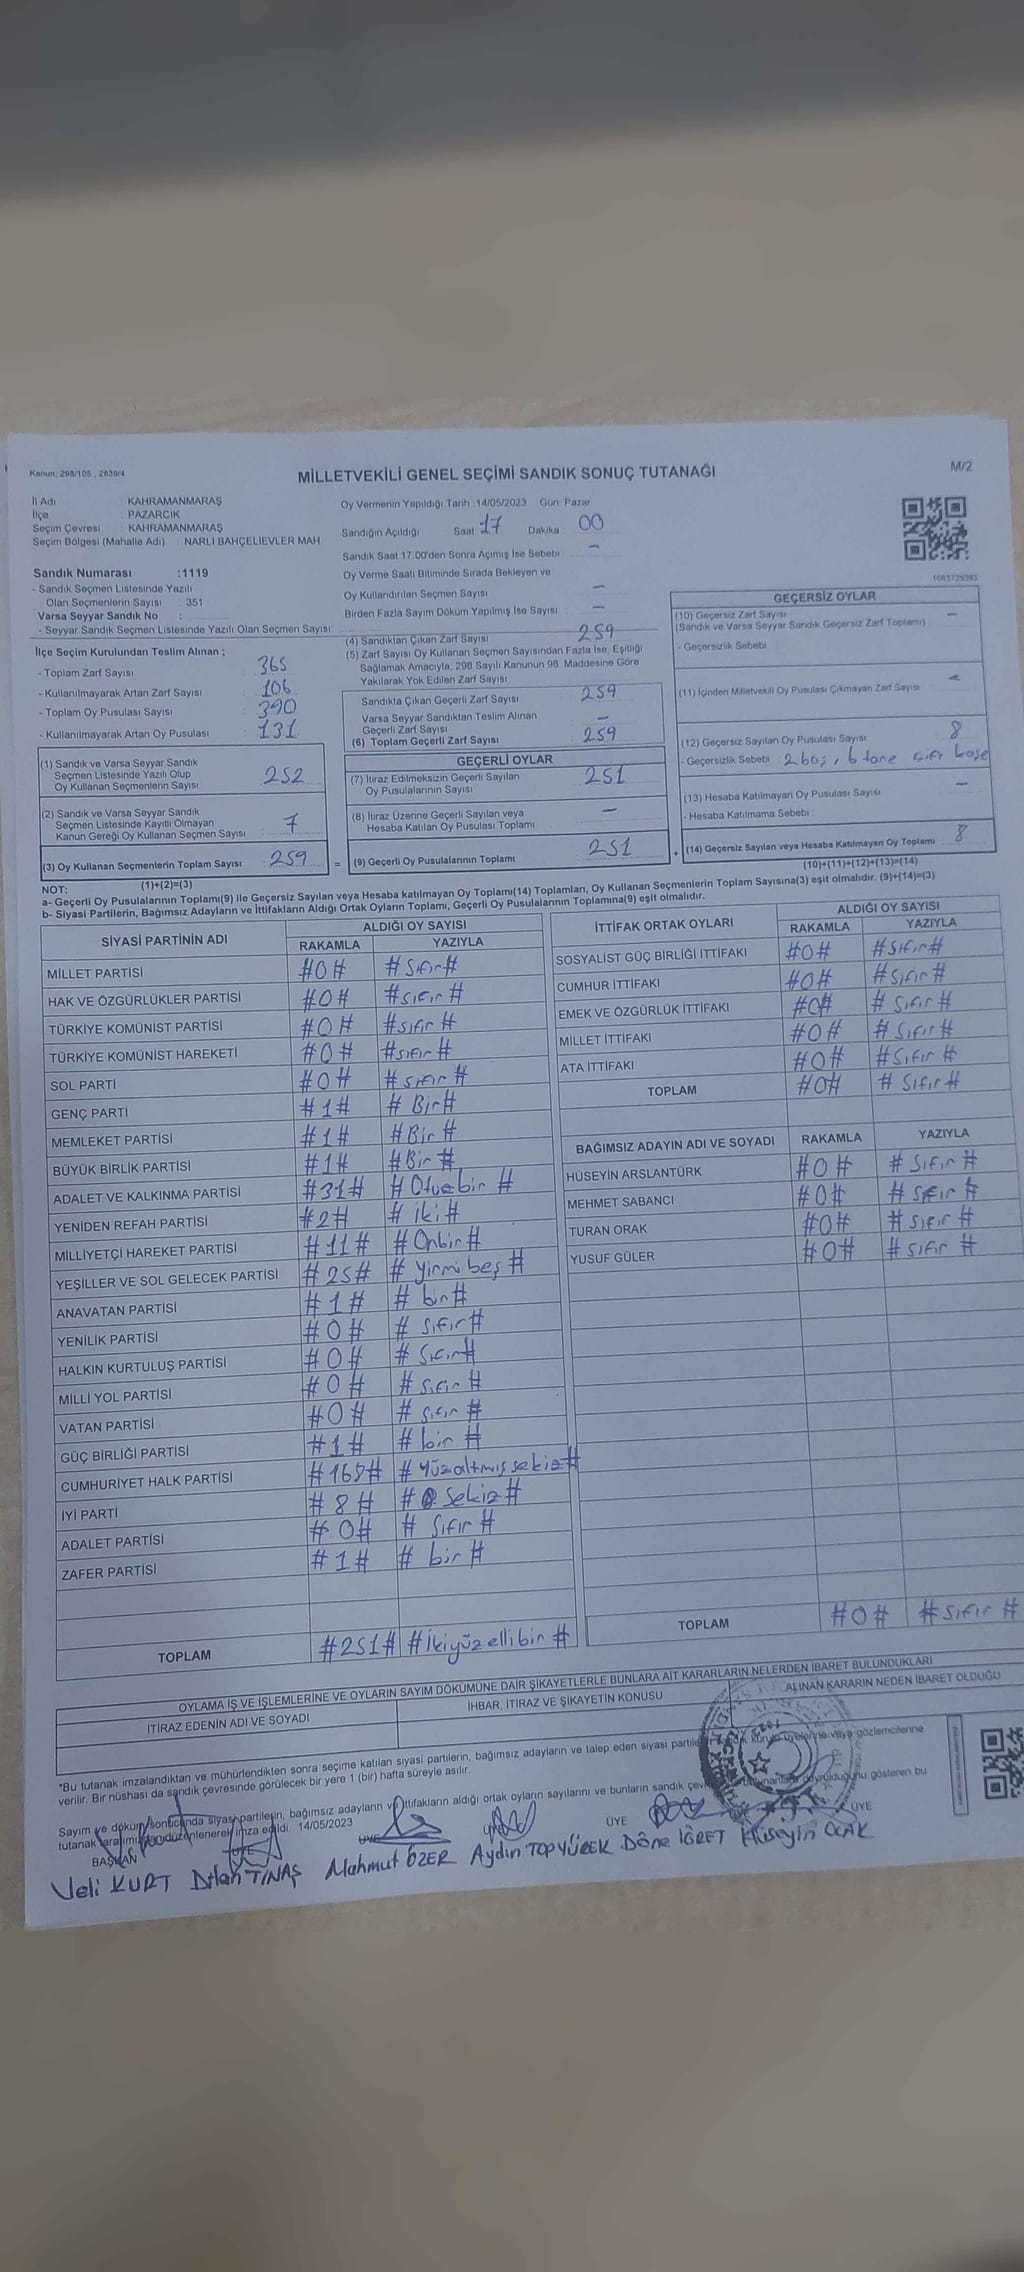 Kanun, 298/105 , 2839/4
MİLLETVEKİLİ GENEL SEÇİMİ SANDIK SONUÇ TUTANAĞI
M/2
İl Adı : KAHRAMANMARAŞ
İlçe : PAZARCIK
Seçim Çevresi : KAHRAMANMARAŞ
Seçim Bölgesi (Mahalle Adı) : NARLI BAHÇELİEVLER MAH
Sandık Numarası :1119
- Sandık Seçmen Listesinde Yazılı
Olan Seçmenlerin Sayısı : 351
Varsa Seyyar Sandık No :
- Seyyar Sandık Seçmen Listesinde Yazılı Olan Seçmen Sayısı:
İlçe Seçim Kurulundan Teslim Alınan ;
- Toplam Zarf Sayısı : 365
- Kullanılmayarak Artan Zarf Sayısı : 106
- Toplam Oy Pusulası Sayısı : 390
- Kullanılmayarak Artan Oy Pusulası : 131
(1) Sandık ve Varsa Seyyar Sandık
Seçmen Listesinde Yazılı Olup
Oy Kullanan Seçmenlerin Sayısı : 252
(2) Sandık ve Varsa Seyyar Sandık
Seçmen Listesinde Kayıtlı Olmayan
Kanun Gereği Oy Kullanan Seçmen Sayısı : 7
(3) Oy Kullanan Seçmenlerin Toplam Sayısı : 259
(1)+(2)=(3)
Oy Vermenin Yapıldığı Tarih :14/05/2023 Gün: Pazar
Sandığın Açıldığı Saat 17 Dakika 00
Sandık Saat 17:00'den Sonra Açılmış İse Sebebi –
Oy Verme Saati Bitiminde Sırada Bekleyen ve
Oy Kullandırılan Seçmen Sayısı –
Birden Fazla Sayım Döküm Yapılmış İse Sayısı –
(4) Sandıktan Çıkan Zarf Sayısı : 259
(5) Zarf Sayısı Oy Kullanan Seçmen Sayısından Fazla İse, Eşitliği
Sağlamak Amacıyla, 298 Sayılı Kanunun 98. Maddesine Göre
Yakılarak Yok Edilen Zarf Sayısı
Sandıkta Çıkan Geçerli Zarf Sayısı : 259
Varsa Seyyar Sandıktan Teslim Alınan
Geçerli Zarf Sayısı : –
(6) Toplam Geçerli Zarf Sayısı : 259
GEÇERLİ OYLAR
(7) İtiraz Edilmeksizin Geçerli Sayılan
Oy Pusulalarının Sayısı : 251
(8) İtiraz Üzerine Geçerli Sayılan veya
Hesaba Katılan Oy Pusulası Toplamı : –
= (9) Geçerli Oy Pusulalarının Toplamı : 251
1083729393
GEÇERSİZ OYLAR
(10) Geçersiz Zarf Sayısı –
(Sandık ve Varsa Seyyar Sandık Geçersiz Zarf Toplamı)
- Geçersizlik Sebebi
(11) İçinden Milletvekili Oy Pusulası Çıkmayan Zarf Sayısı –
(12) Geçersiz Sayılan Oy Pusulası Sayısı 8
- Geçersizlik Sebebi 2 boş, 6 tane çift kaşe
(13) Hesaba Katılmayan Oy Pusulası Sayısı –
- Hesaba Katılmama Sebebi
+ (14) Geçersiz Sayılan veya Hesaba Katılmayan Oy Toplamı 8
(10)+(11)+(12)+(13)=(14)
NOT:
a- Geçerli Oy Pusulalarının Toplamı(9) ile Geçersiz Sayılan veya Hesaba katılmayan Oy Toplamı(14) Toplamları, Oy Kullanan Seçmenlerin Toplam Sayısına(3) eşit olmalıdır. (9)+(14)=(3)
b- Siyasi Partilerin, Bağımsız Adayların ve İttifakların Aldığı Ortak Oyların Toplamı, Geçerli Oy Pusulalarının Toplamına(9) eşit olmalıdır.
SİYASİ PARTİNİN ADI ALDIĞI OY SAYISI
RAKAMLA YAZIYLA
MİLLET PARTİSİ #0# #Sıfır#
HAK VE ÖZGÜRLÜKLER PARTİSİ #0# #sıfır#
TÜRKİYE KOMÜNİST PARTİSİ #0# #sıfır#
TÜRKİYE KOMÜNİST HAREKETİ #0# #sıfır#
SOL PARTİ #0# #sıfır#
GENÇ PARTİ #1# #Bir#
MEMLEKET PARTİSİ #1# #Bir#
BÜYÜK BİRLİK PARTİSİ #1# #Bir#
ADALET VE KALKINMA PARTİSİ #31# #Otuzbir#
YENİDEN REFAH PARTİSİ #2# #iki#
MİLLİYETÇİ HAREKET PARTİSİ #11# #Onbir#
YEŞİLLER VE SOL GELECEK PARTİSİ #25# #yirmibeş#
ANAVATAN PARTİSİ #1# #bir#
YENİLİK PARTİSİ #0# #sıfır#
HALKIN KURTULUŞ PARTİSİ #0# #Sıfır#
MİLLİ YOL PARTİSİ #0# #sıfır#
VATAN PARTİSİ #0# #sıfır#
GÜÇ BİRLİĞİ PARTİSİ #1# #bir#
CUMHURİYET HALK PARTİSİ #168# #Yüzaltmışsekiz#
İYİ PARTİ #8# #Sekiz#
ADALET PARTİSİ #0# #Sıfır#
ZAFER PARTİSİ #1# #bir#
TOPLAM #251# #ikiyüzellibir#
İTTİFAK ORTAK OYLARI ALDIĞI OY SAYISI
RAKAMLA YAZIYLA
SOSYALİST GÜÇ BİRLİĞİ İTTİFAKI #0# #Sıfır#
CUMHUR İTTİFAKI #0# #Sıfır#
EMEK VE ÖZGÜRLÜK İTTİFAKI #0# #sıfır#
MİLLET İTTİFAKI #0# #Sıfır#
ATA İTTİFAKI #0# #Sıfır#
TOPLAM #0# #Sıfır#
BAĞIMSIZ ADAYIN ADI VE SOYADI RAKAMLA YAZIYLA
HÜSEYİN ARSLANTÜRK #0# #Sıfır#
MEHMET SABANCI #0# #sıfır#
TURAN ORAK #0# #sıfır#
YUSUF GÜLER #0# #sıfır#
TOPLAM #0# #sıfır#
OYLAMA İŞ VE İŞLEMLERİNE VE OYLARIN SAYIM DÖKÜMÜNE DAİR ŞİKAYETLERLE BUNLARA AİT KARARLARIN NELERDEN İBARET BULUNDUKLARI
İTİRAZ EDENİN ADI VE SOYADI İHBAR, İTİRAZ VE ŞİKAYETİN KONUSU ALINAN KARARIN NEDEN İBARET OLDUĞU
*Bu tutanak imzalandıktan ve mühürlendikten sonra seçime katılan siyasi partilerin, bağımsız adayların ve talep eden siyasi partile kurulu üyelerine veya gözlemcilerine
verilir. Bir nüshası da sandık çevresinde görülecek bir yere 1 (bir) hafta süreyle asılır.
Sayım ve döküm sonucunda siyasi partilerin, bağımsız adayların ve ittifakların aldığı ortak oyların sayılarını ve bunların sandık duyrulduğunu gösteren bu
tutanak düzenlenerek imza edildi. 14/05/2023
BAŞKAN ÜYE ÜYE ÜYE ÜYE ÜYE
Veli KURT Dilan TINAŞ Mahmut ÖZER Aydın TOPYÜREK Döne İGRET Hüseyin OCAK